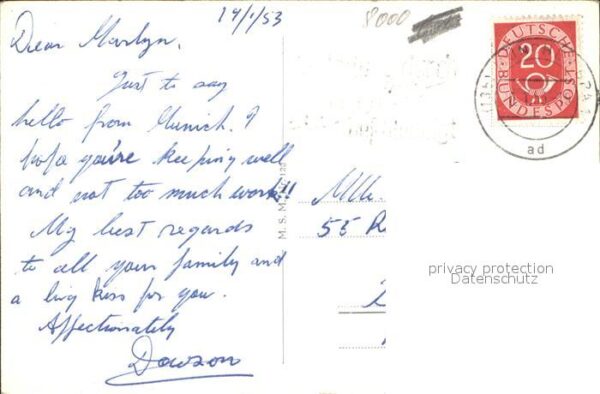 19/1/53
8000
Dear Marlyn,
Just to say
hello from Munich. I
hope you're keeping well
and not too much work!!
My best regards
to all your family and
a big kiss for you.
Affectionately
Dawson
M. S. M.
Mlle.
55 R
DEUTSCHE
BUNDESPOST
20
(13b)
ad
privacy protection
Datenschutz